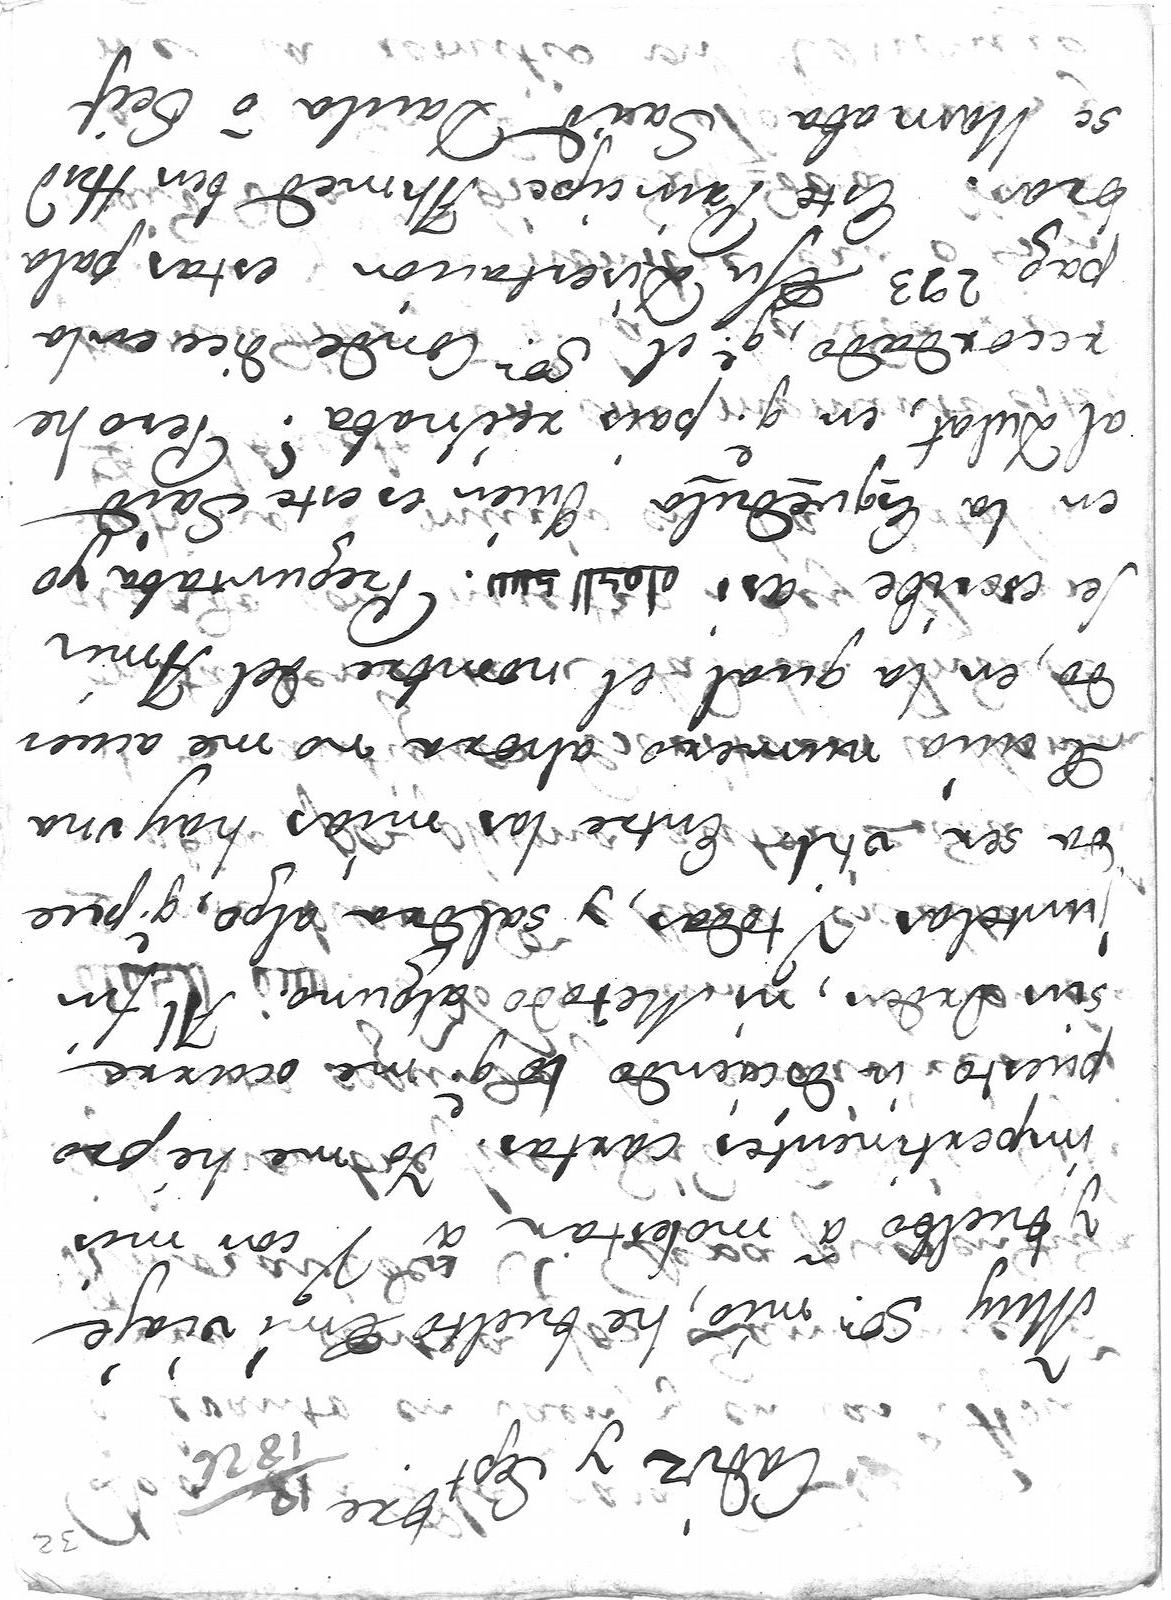 32
Cadiz y Septbre. 19/1826
Muy Sor. mio, he buelto de mi viaje
y buelbo á molestar á V con mis
impertinentes cartas. Yo me hé pro
puesto ir diciendo lo q. me ocurre
sin orden, ni Metodo alguno. Al fin
juntelas V todas, y saldra algo, q. pue
da ser util. Entre las mias hay una
cuio numero ahora no me acuer
do, en la qual el nombre del Amir
se escribe asi Preguntaba yo
en la Esquedula Quien es este Said
al Dulat, en q. pais reinaba? Pero he
recordado, q. el Sor. Conde dice en la
pag. 293 de su Disertacion estas pala
bras. Este Principe Ahmed ben Hud
se llamaba Said Daula ó Ceif